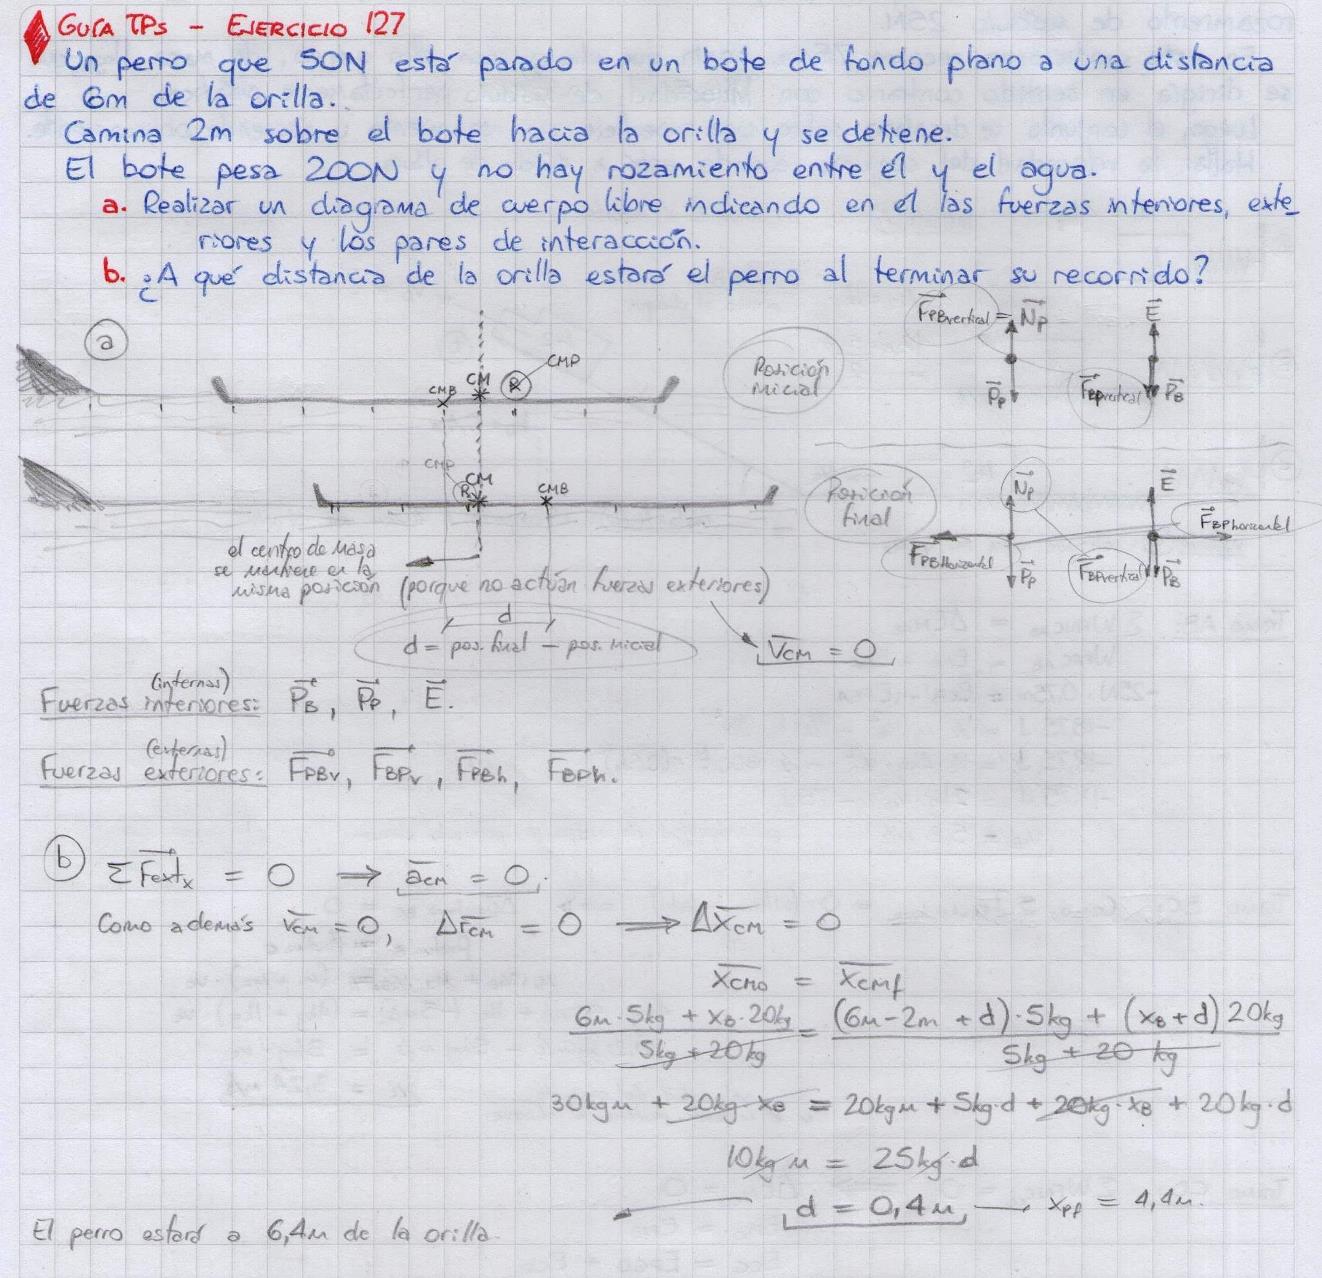 GUÍA TPs - EJERCICIO 127
Un perro que 50N está parado en un bote de fondo plano a una distancia
de 6m de la orilla.
Camina 2m sobre el bote hacia la orilla y se detiene.
El bote pesa 200N y no hay rozamiento entre él y el agua.
a. Realizar un diagrama de cuerpo libre indicando en el las fuerzas interiores, exte_
riores y los pares de interacción.
b. ¿A qué distancia de la orilla estará el perro al terminar su recorrido?
a
CMB CM R CMP
Posición inicial
F⃗PBvertical = N⃗P
P⃗P
F⃗BPvertical
E⃗
P⃗B
CMP CM
R CMB
Posición final
N⃗P
F⃗PBHorizontal
P⃗P
F⃗BPvertical
E⃗
F⃗BPhorizontal
P⃗B
el centro de masa
se mantiene en la
misma posición (porque no actúan fuerzas exteriores)
d
d = pos. final - pos. inicial
V⃗CM = 0
(internas)
Fuerzas interiores: P⃗B, P⃗P, E⃗.
(externas)
Fuerzas exteriores: F⃗PBv, F⃗BPv, F⃗PBh, F⃗BPh.
b ΣF⃗extx = 0 ⟹ a⃗CM = 0.
Como además v⃗CM = 0, Δr⃗CM = 0 ⟹ Δx⃗CM = 0
x⃗CMo = x⃗CMf
6m·5kg + xB·20kg = (6m-2m+d)·5kg + (xB+d) 20kg
5kg + 20kg 5kg + 20 kg
30kgm + 20kg·xB = 20kgm + 5kg·d + 20kg·xB + 20kg·d
10kg m = 25kg·d
d = 0,4m → xPf = 4,4m.
El perro estará a 6,4m de la orilla.